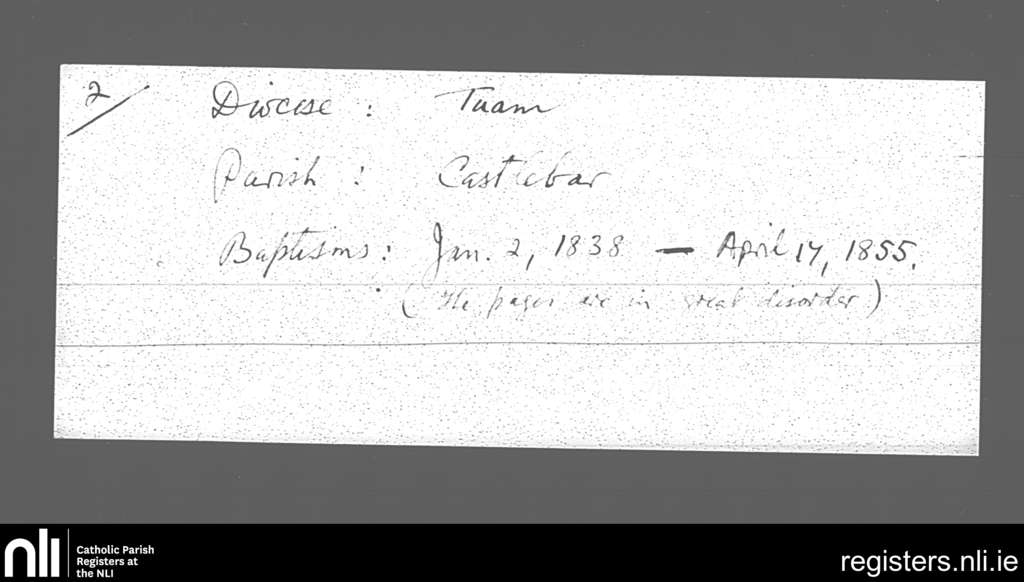 2/
Diocese : Tuam
Parish : Castlebar
Baptisms : Jan. 2, 1838 — April 17, 1855.
(The pages are in great disorder)
nli
Catholic Parish
Registers at
the NLI
registers.nli.ie